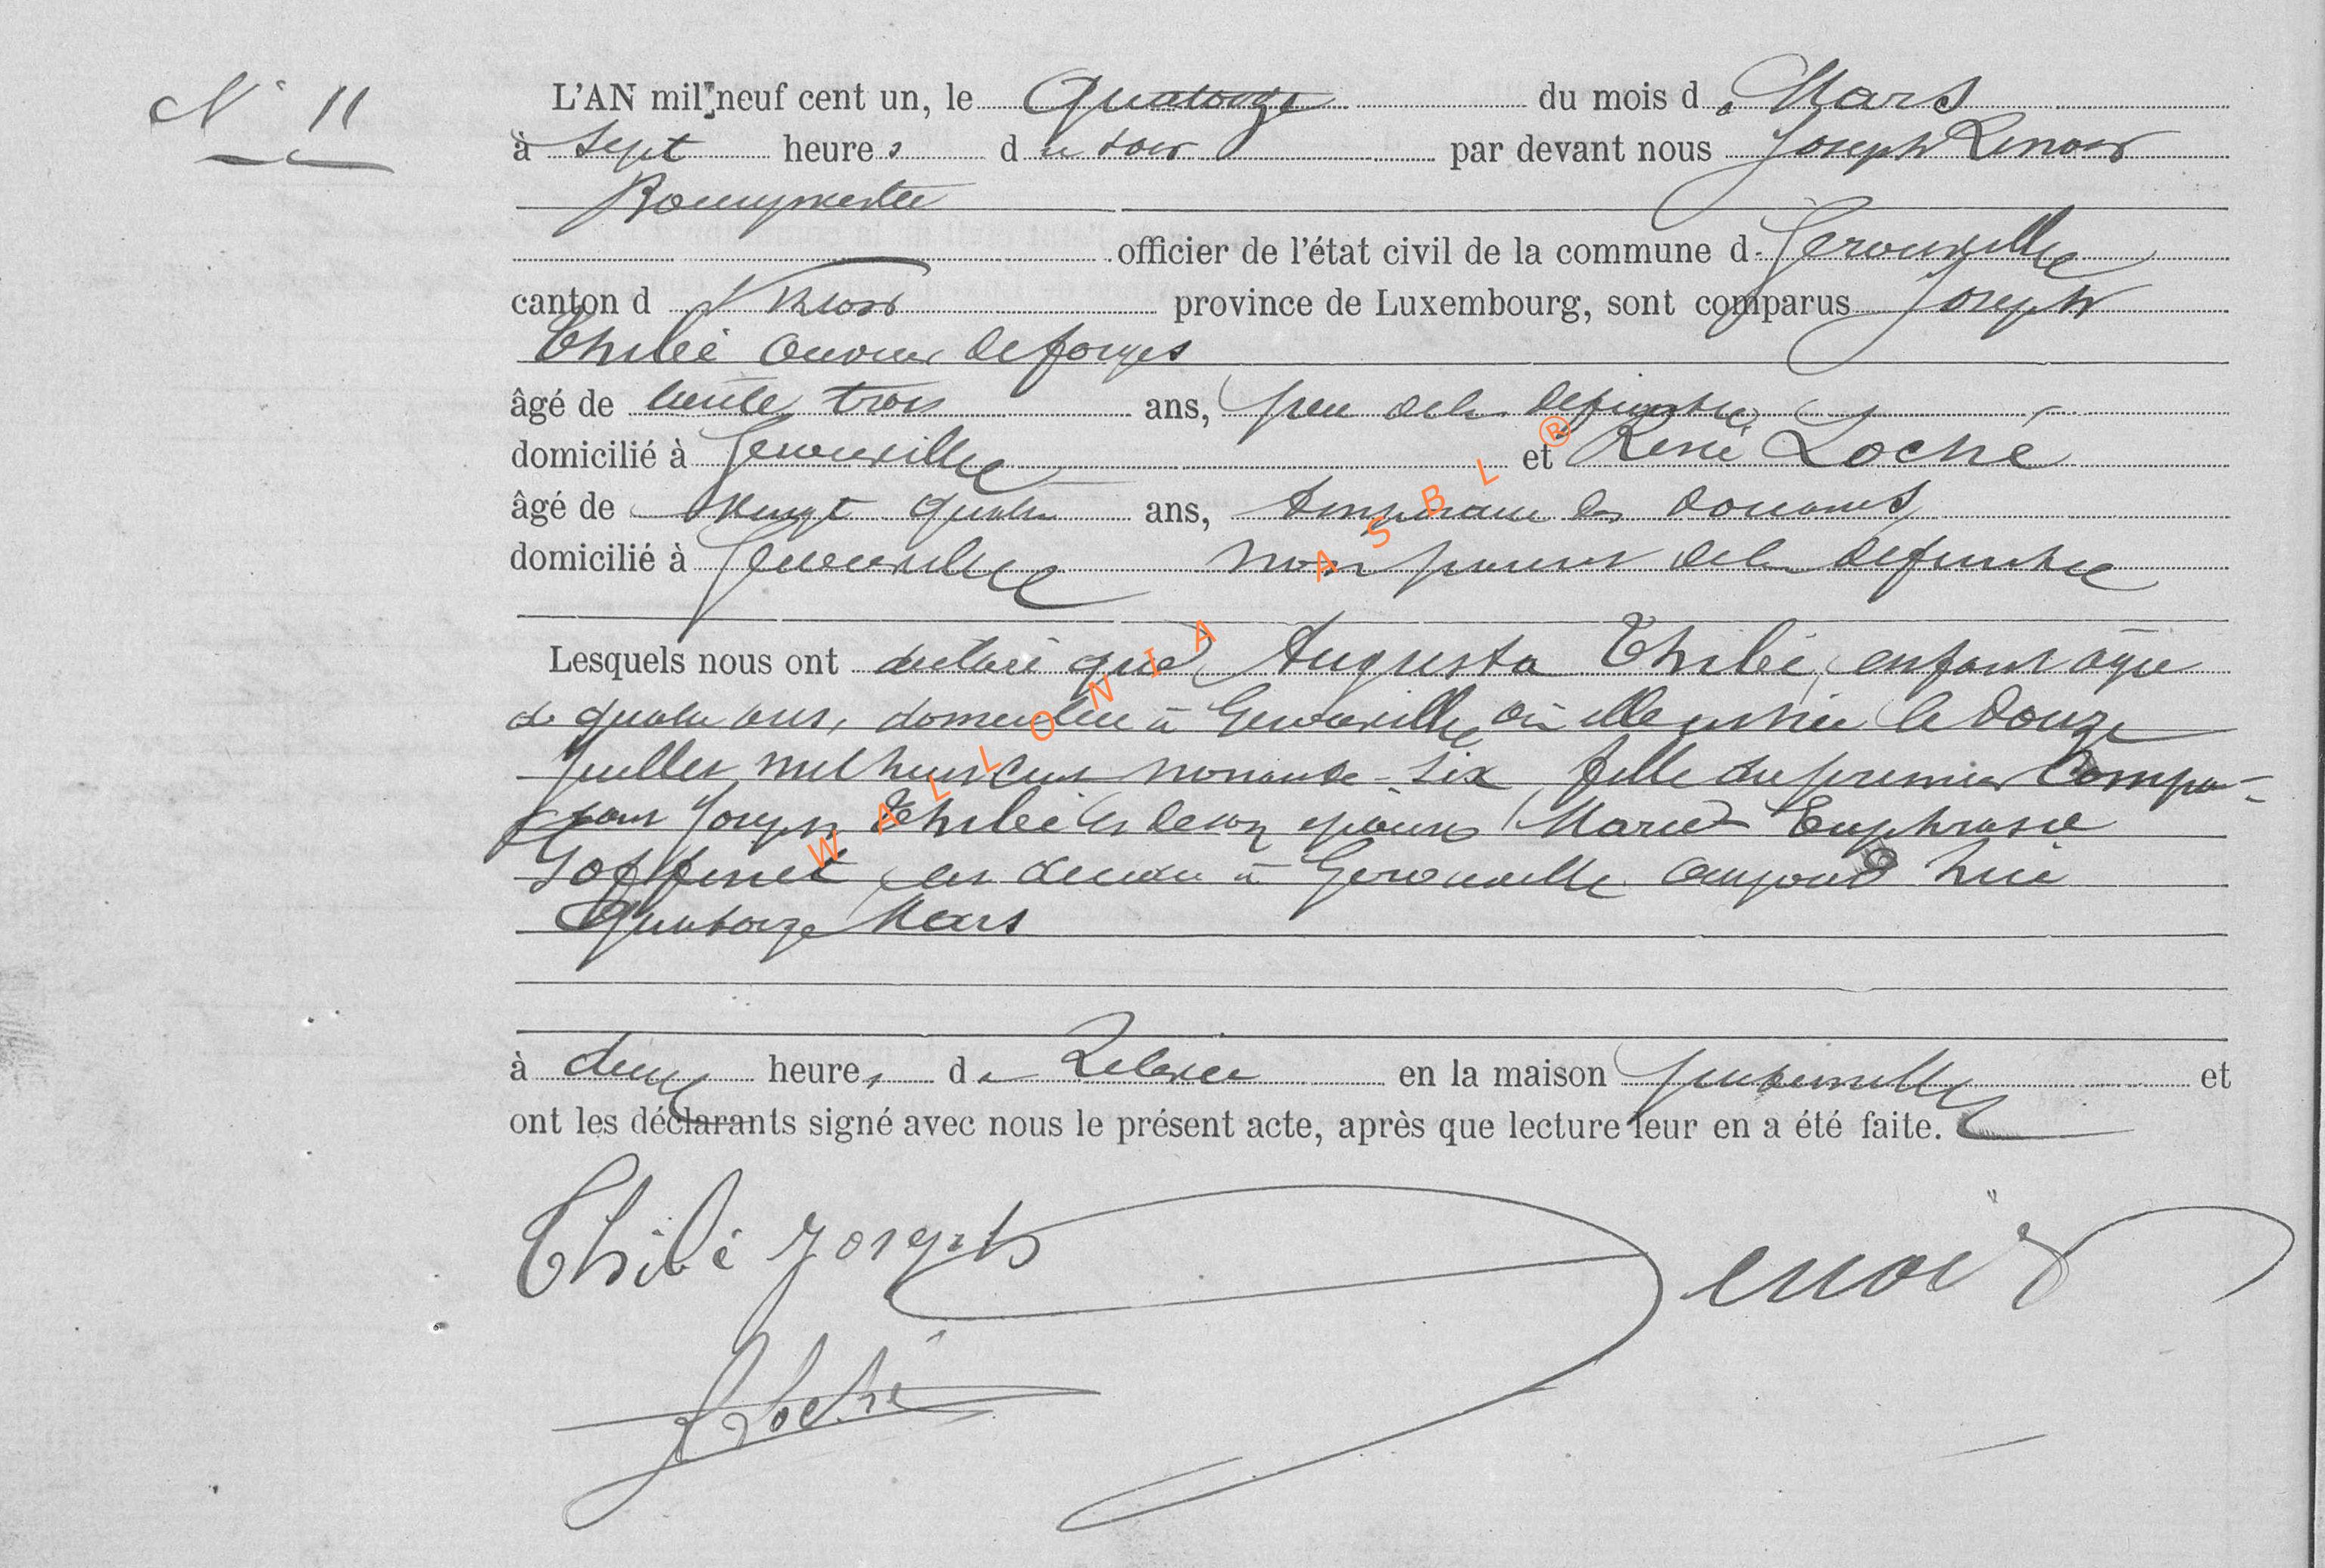 N° 11
L'AN mil neuf cent un, le Quatorze du mois de Mars
à sept heures du soir par devant nous Joseph Lenoir
Bourgmestre
officier de l'état civil de la commune de Gerouville
canton de Virton province de Luxembourg, sont comparus Joseph
Thibé ouvrier de forges
âgé de trente trois ans, père de la défunte
domicilié à Gerouville et René Loché
âgé de vingt quatre ans, des douanes
domicilié à Gerouville non parent de la défunte
Lesquels nous ont déclaré que Augusta Thibé, enfant âgée
de quatre ans, domiciliée à Gerouville où elle est née le douze
juillet mil huit cent nonante-six, fille du premier compa-
rant Joseph Thibé et de son épouse Marie Euphrasie
Goffinet est décédée à Gerouville aujourd'hui
quatorze Mars
à deux heures de relevée en la maison paternelle et
ont les déclarants signé avec nous le présent acte, après que lecture leur en a été faite.
Thibé Joseph Lenoir
Loché
WALLONIA ASBL ®